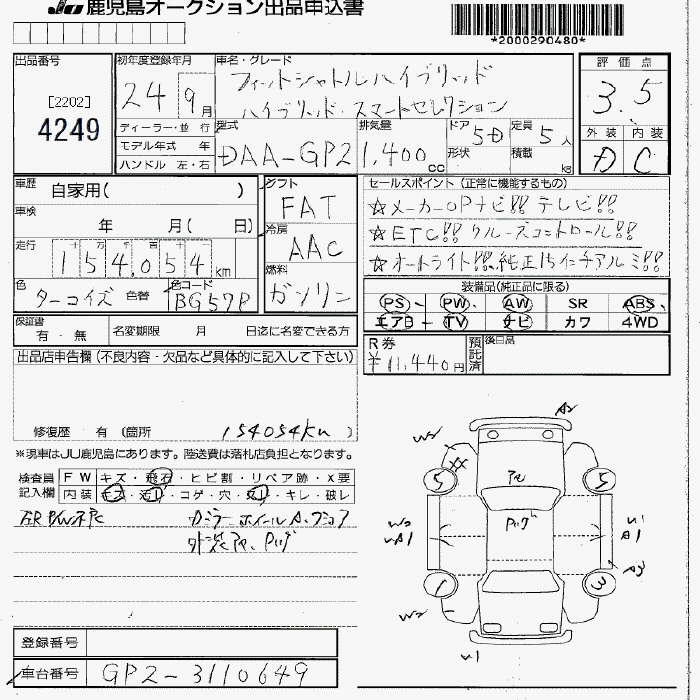 JU 鹿児島オークション出品申込書
*2000290480*
出品番号
[2202]
4249
初年度登録年月
24 9月
ディーラー・並 行
モデル年式 年
ハンドル 左・右
車名・グレード
フィットシャトルハイブリッド
ハイブリッド・スマートセレクション
型式
DAA-GP2
排気量
1,400 cc
ドア 5D
形状
定員 5人
積載 kg
評 価 点
3.5
外 装 内 装
D C
車歴
自家用( )
車検
年 月( 日)
走行
十 万 千 百 十
154,054 km
色
ターコイズ 色替
色コード
BG57P
保証書
有・無
名変期限 月 日迄に名変できる方
シフト
FAT
冷房
AAC
燃料
ガソリン
セールスポイント(正常に機能するもの)
☆メーカーOPナビ!! テレビ!!
☆ETC!! クルーズコントロール!!
☆オートライト!! 純正15インチアルミ!!
装備品(純正品に限る)
PS、 PW、 AW SR ABS、
エアB TV ナビ カワ 4WD
R券
¥11,440円
預託済
後日品
出品店申告欄(不良内容・欠品など具体的に記入して下さい)
修復歴 有(箇所 154054km )
※現車はJU鹿児島にあります。陸送費は落札店負担となります。
検査員
記入欄
FW キズ・飛石・ヒビ割・リペア跡・X要
内装 キズ・汚れ・コゲ・穴・スレ・キレ・破レ
カラー ホイールキャップコア
登録番号
車台番号 GP2-3110649
A2
W2
XX
5 5
アル
Pガラ
W2
A1
U1
A1
A3
1 3
W2
U1